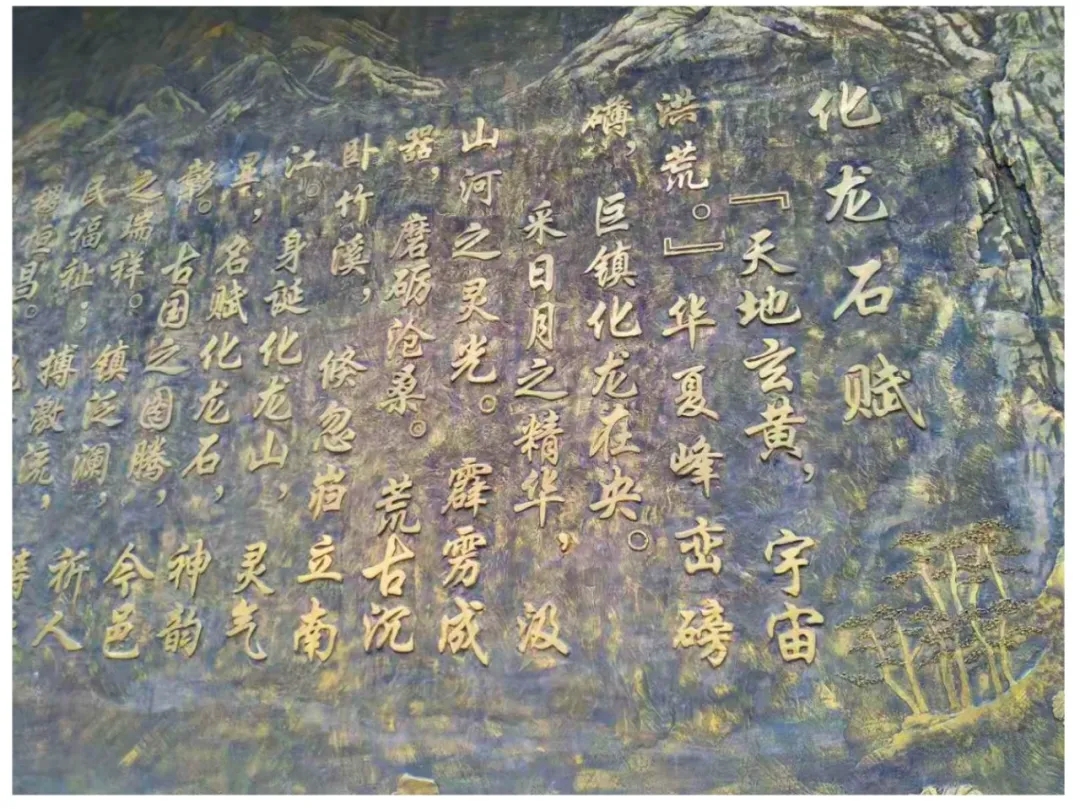 化龙石赋
『天地玄黄，宇宙
洪荒。』华夏峰峦磅
礴，巨镇化龙荘央。
采日月之精华，汲
山河之灵光。霹雳成
器，磨砺沧桑。荒古沉
卧竹溪，倏忽岿立南
江。身诞化龙山，灵气
異，名赋化龙石，神韵
彰。古国之图腾，今邑
之瑞祥。镇泛澜，祈人
民福祉；搏激流，
恒昌。